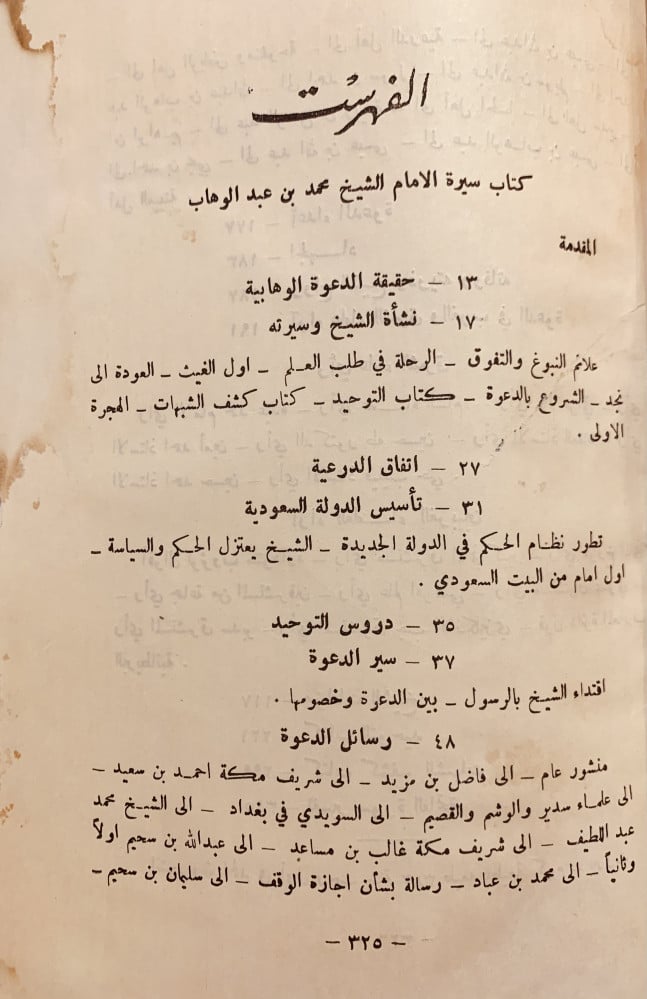 الفهرست
كتاب سيرة الامام الشيخ محمد بن عبد الوهاب
المقدمة
١٣ – حقيقة الدعوة الوهابية
١٧ – نشأة الشيخ وسيرته
علائم النبوغ والتفوق – الرحلة في طلب العلم – اول الغيث – العودة الى
نجد – الشروع بالدعوة – كتاب التوحيد – كتاب كشف الشبهات – الهجرة
الاولى .
٢٧ – اتفاق الدرعية
٣١ – تأسيس الدولة السعودية
تطور نظام الحكم في الدولة الجديدة – الشيخ يعتزل الحكم والسياسة –
اول امام من البيت السعودي .
٣٥ – دروس التوحيد
٣٧ – سير الدعوة
اقتداء الشيخ بالرسول – بين الدعوة وخصومها .
٤٨ – رسائل الدعوة
منشور عام – الى فاضل بن مزيد – الى شريف مكة احمد بن سعيد –
الى علماء سدير والوشم والقصيم – الى السويدي في بغداد – الى الشيخ محمد
عبد اللطيف – الى شريف مكة غالب بن مساعد – الى عبدالله بن سحيم اولاً
وثانياً – الى محمد بن عباد – رسالة بشأن اجازة الوقف – الى سليمان بن سحيم –
– ٣٢٥ –